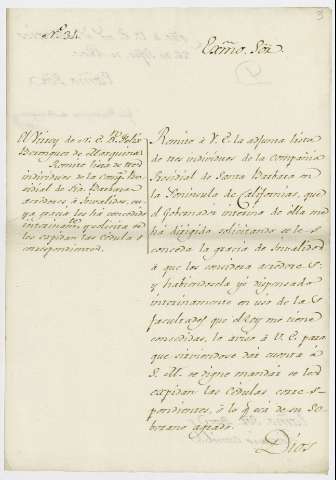 3
N.º 31.
Exmo. Sor.
El Virrey de N. E. Dn. Felix
Berenguer de Marquina.
Remite lista de tres
individuos de la Compa. Pre-
sidial de Sta. Barbara
acrédores à Invalidos, cu-
ya gracia les ha concedido
interinamte. y solicita se
les expidan las Cédulas
correspondientes.
Remito à V. E. la adjunta lista
de tres individuos de la Compañia
Presidial de Santa Barbara en
la Peninsula de Californias, que
el Gobernador interino de ella me
ha dirigido solicitando se les con-
ceda la gracia de Invalidos
à que los considera acrédores:
y habiendosela yo dispensado
interinamente en uso de las
facultades que el Rey me tiene
concedidas, lo aviso à V. E. para
que sirviendose dar cuenta à
S. M. se digne mandar se les
expidan las Cédulas corre-
spondientes, ò lo que sea de su So-
berano agrado.
Dios